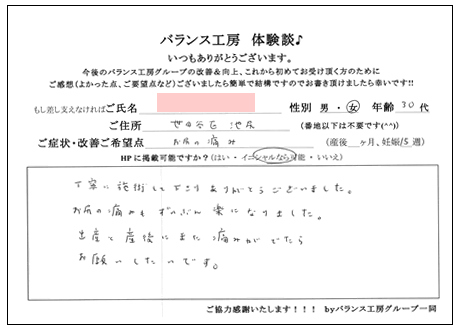 バランス工房 体験談♪
いつもありがとうございます。
今後のバランス工房グループの改善&向上、これから初めてお受け頂く方のために
ご感想(よかった点、ご要望点など)ございましたら簡単で結構ですのでお書き頂けましたら幸いです!!
もし差し支えなければご氏名 性別 男・女 年齢 30代
ご住所 世田谷区 池尻 (番地以下は不要です(^^))
ご症状・改善ご希望点 お尻の痛み (産後 ヶ月、妊娠 週)
HPに掲載可能ですか?(はい・イニシャルなら可能・いいえ)
丁寧に施術して下さりありがとうございました。
お尻の痛みもずいぶん楽になりました。
出産と産後にまた痛みがでたら
お願いしたいです。
ご協力感謝いたします!!! byバランス工房グループ一同